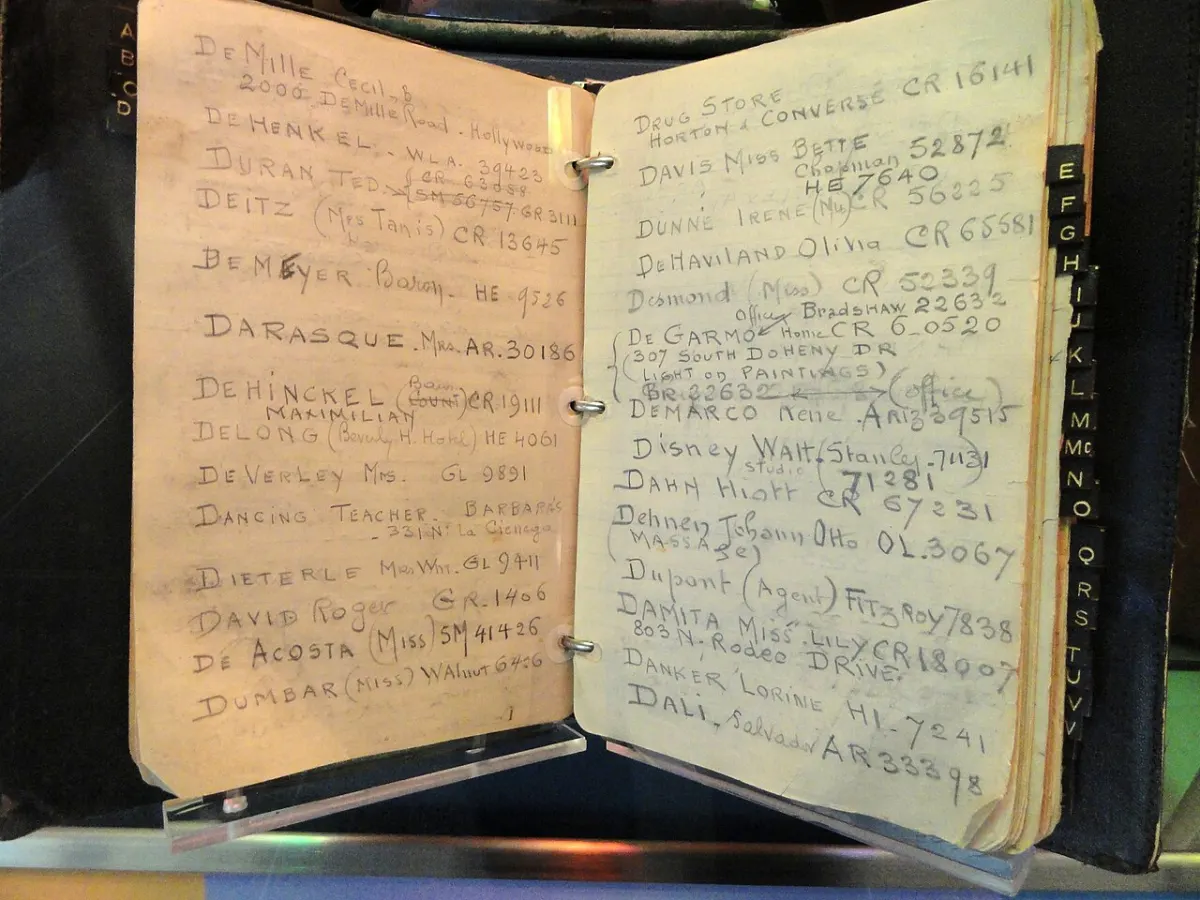 A
B
C
D
DeMille Cecil, B
2000 DeMille Road. Hollywood
DeHENKEL. WLA. 39423
DURAN TED.
CR 63058
SM 56757. GR 3111
DEITZ (Mrs Tanis) CR 13645
DeMEYER Baron. HE 9526
DARASQUE. Mrs. AR. 30186
DEHINCKEL (Baron COUNT) CR.19111
MAXIMILIAN
DELONG (Beverly H. Hotel) HE 4061
DEVERLEY Mrs. GL 9891
DANCING TEACHER. BARBARA'S
- 331 No La Cienega
DIETERLE Mrs Wm. GL 9411
DAVID Roger GR. 1406
DE ACOSTA (Miss) SM 41426
DUMBAR (MISS) WAlnut 6426
DRUG STORE
HORTON & CONVERSE CR 16141
DAVIS MISS BETTE
Chapman 52872
HE 7640
DUNNE IRENE (Nu) CR 56225
DeHAVILAND Olivia CR 65581
Desmond (Miss) CR 52339
Office Bradshaw 22632
DE GARMO Home CR 6-0520
(307 SOUTH DOHENY DR
LIGHT on PAINTINGS)
BR. 22632 (office)
DEMARCO Rene. ARIZ 39515
Disney Walt. (Stanley. 71131)
studio 71281
DAHN Hiatt CR 67231
Dehnen Johann Otto OL. 3067
(MASSAGE)
Dupont (Agent) FITZROY 7838
DAMITA MISS LILY CR 18007
803 N. RODEO DRIVE.
DANKER LORINE HI. 7241
DALI, Salvador AR 33398
E
F
G
H
I
J
K
L
M
Mc
N
O
Q
R
S
T
U
V